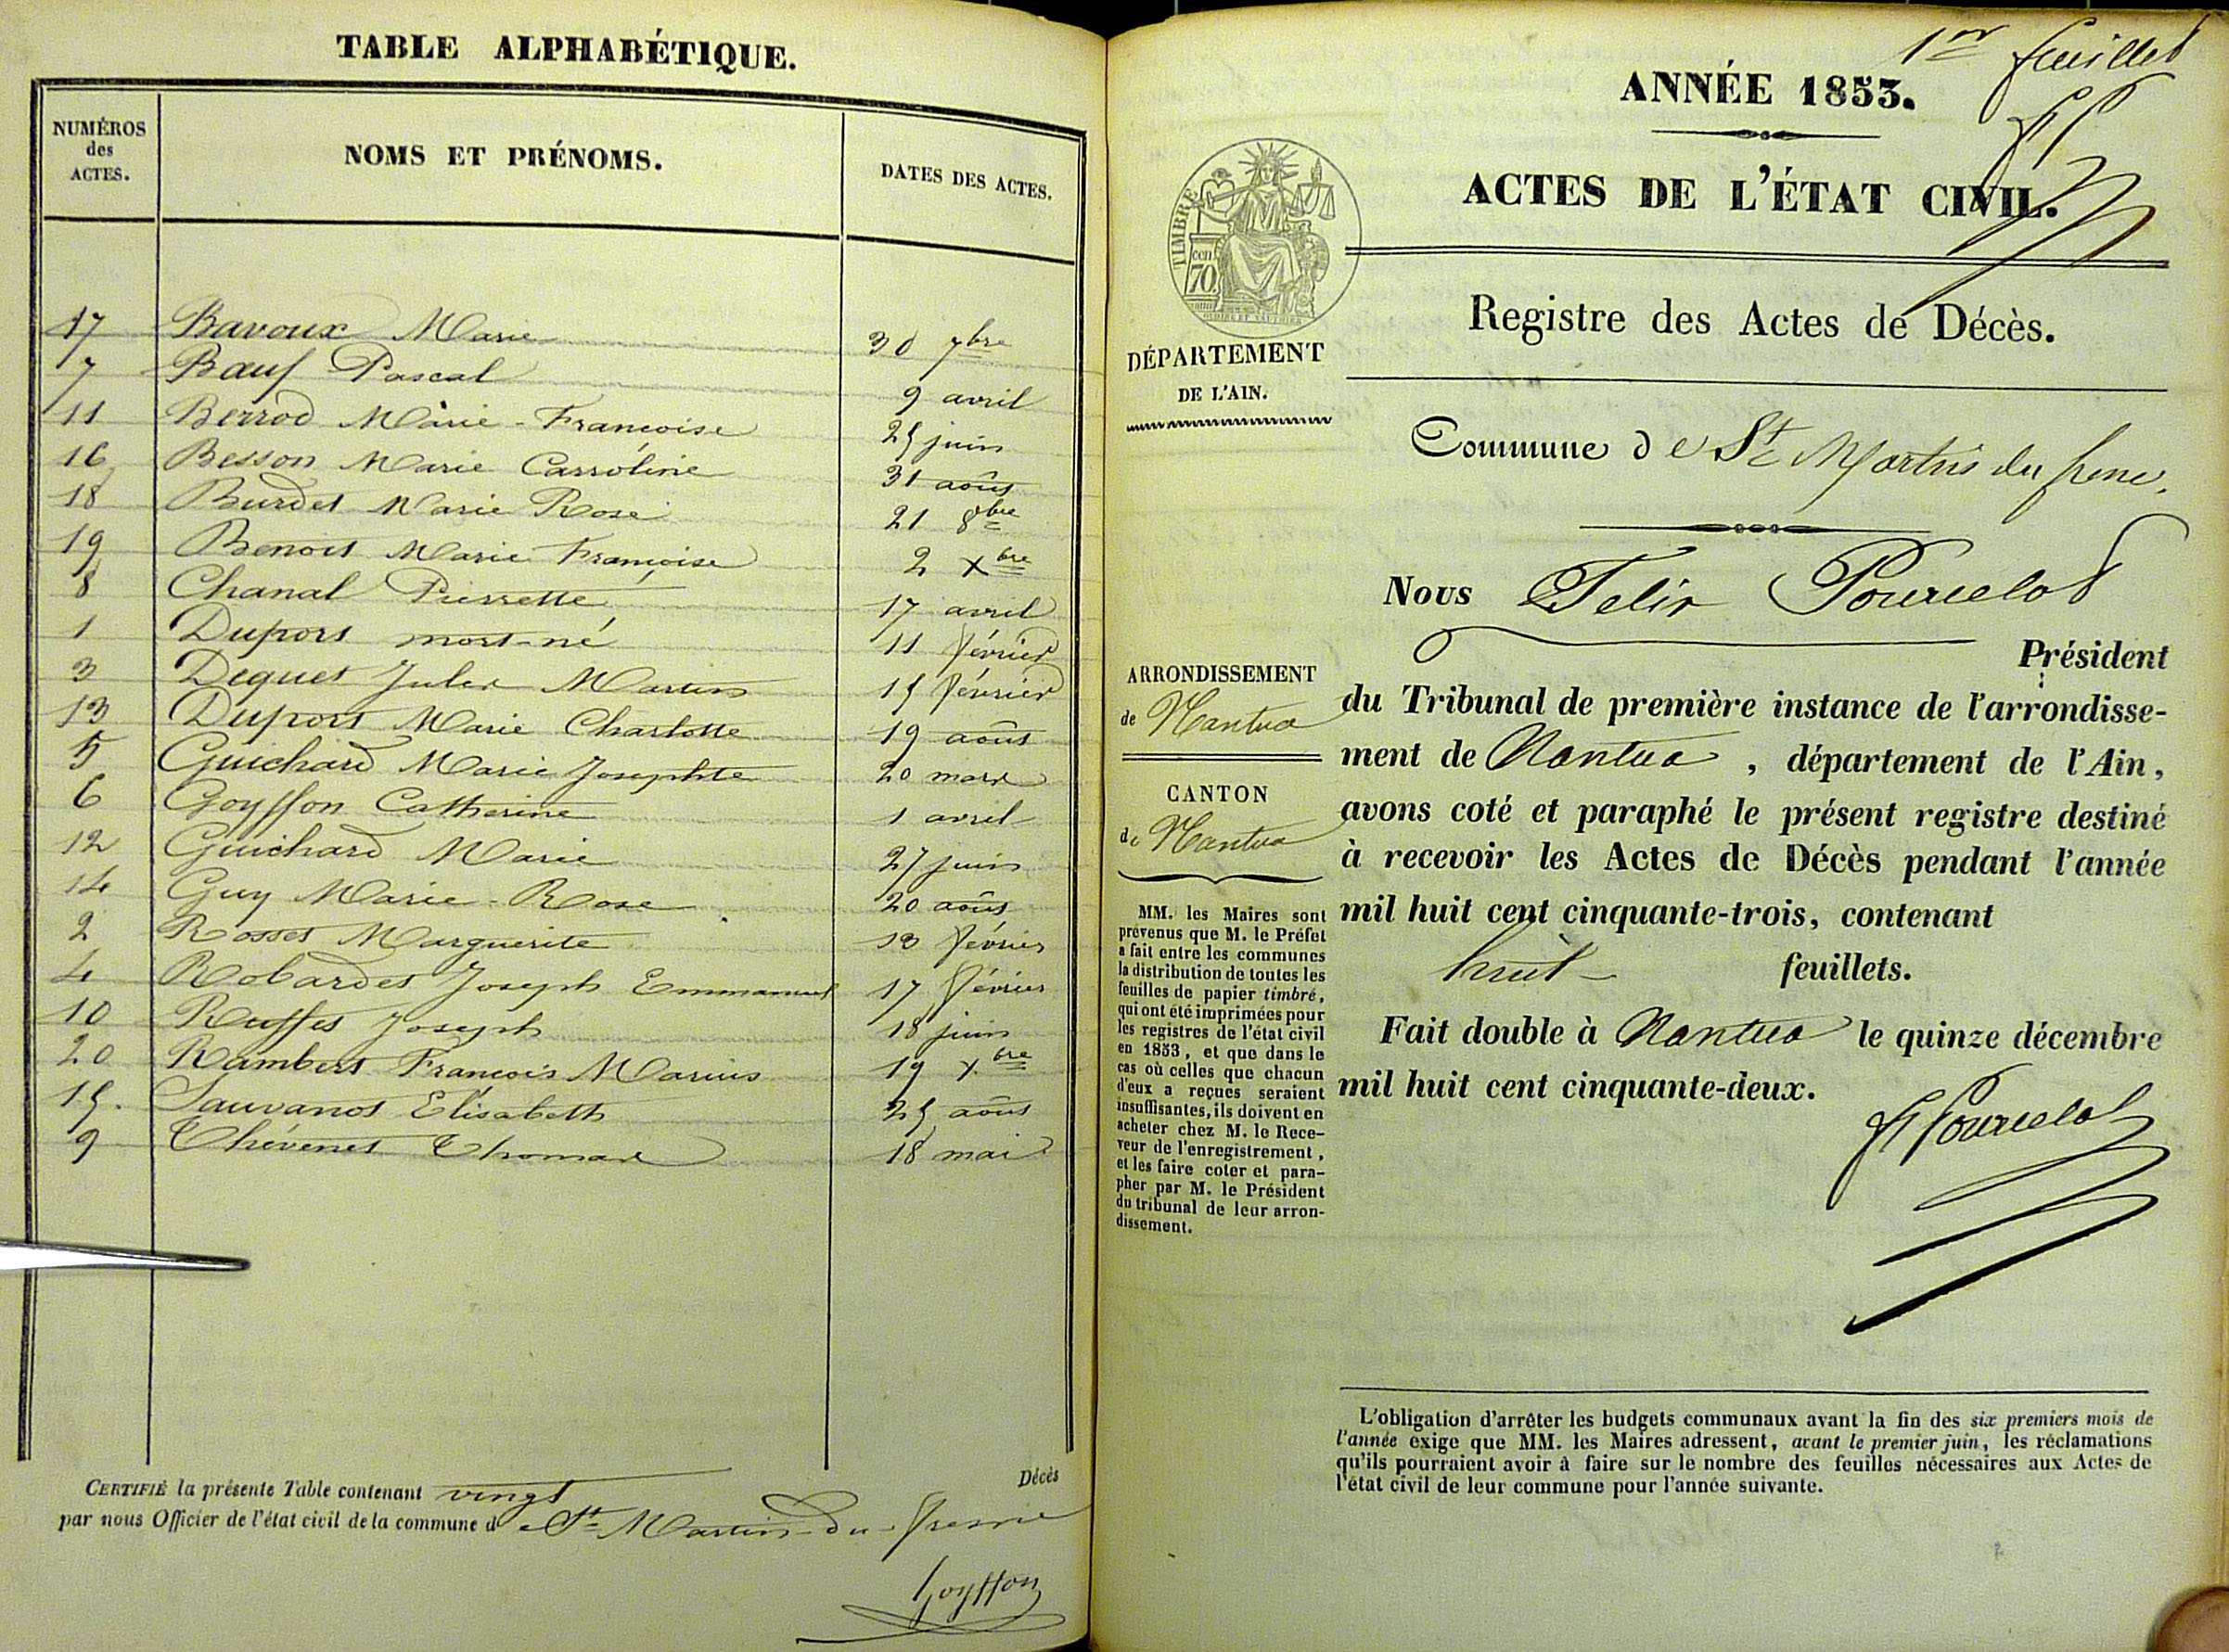 TABLE ALPHABÉTIQUE.
NUMÉROS
des
ACTES.
NOMS ET PRÉNOMS.
DATES DES ACTES.
17 Bavoux Marie 30 7bre
7 Bœuf Pascal 9 avril
11 Berrod Marie-Françoise 25 juin
16 Besson Marie Carroline 31 août
18 Burdet Marie Rose 21 8bre
19 Benoit Marie Françoise 2 Xbre
8 Chanal Pierrette 17 avril
1 Duport mort-né 11 février
3 Dequet Jules Martin 15 février
13 Duport Marie Charlotte 19 août
5 Guichard Marie Josephte 20 mars
6 Goyffon Catherine 1 avril
12 Guichard Marie 27 juin
14 Guy Marie-Rose 20 août
2 Rosset Marguerite 13 février
4 Robardet Joseph Emmanuel 17 février
10 Ruffet Joseph 18 juin
20 Rambert François Marius 19 Xbre
15. Sauvanot Elisabeth 25 août
9 Thévenet Thomas 18 mai
CERTIFIÉ la présente Table contenant vingt Décès
par nous Officier de l'état civil de la commune de St Martin-du-fresne
Goyffon
1er feuillet
ANNÉE 1853.
ACTES DE L'ÉTAT CIVIL.
TIMBRE
cen.
70
Registre des Actes de Décès.
DÉPARTEMENT
DE L'AIN.
Commune de St Martin du frene.
Nous Felix Pourcelot
Président
ARRONDISSEMENT
de Nantua
CANTON
de Nantua
du Tribunal de première instance de l'arrondisse-
ment de Nantua, département de l'Ain,
avons coté et paraphé le présent registre destiné
à recevoir les Actes de Décès pendant l'année
mil huit cent cinquante-trois, contenant
huit feuillets.
Fait double à Nantua le quinze décembre
mil huit cent cinquante-deux.
F Pourcelot
MM. les Maires sont
prévenus que M. le Préfet
a fait entre les communes
la distribution de toutes les
feuilles de papier timbré,
qui ont été imprimées pour
les registres de l'état civil
en 1853, et que dans le
cas où celles que chacun
d'eux a reçues seraient
insuffisantes, ils doivent en
acheter chez M. le Rece-
veur de l'enregistrement,
et les faire coter et para-
pher par M. le Président
du tribunal de leur arron-
dissement.
L'obligation d'arrêter les budgets communaux avant la fin des six premiers mois de
l'année exige que MM. les Maires adressent, avant le premier juin, les réclamations
qu'ils pourraient avoir à faire sur le nombre des feuilles nécessaires aux Actes de
l'état civil de leur commune pour l'année suivante.